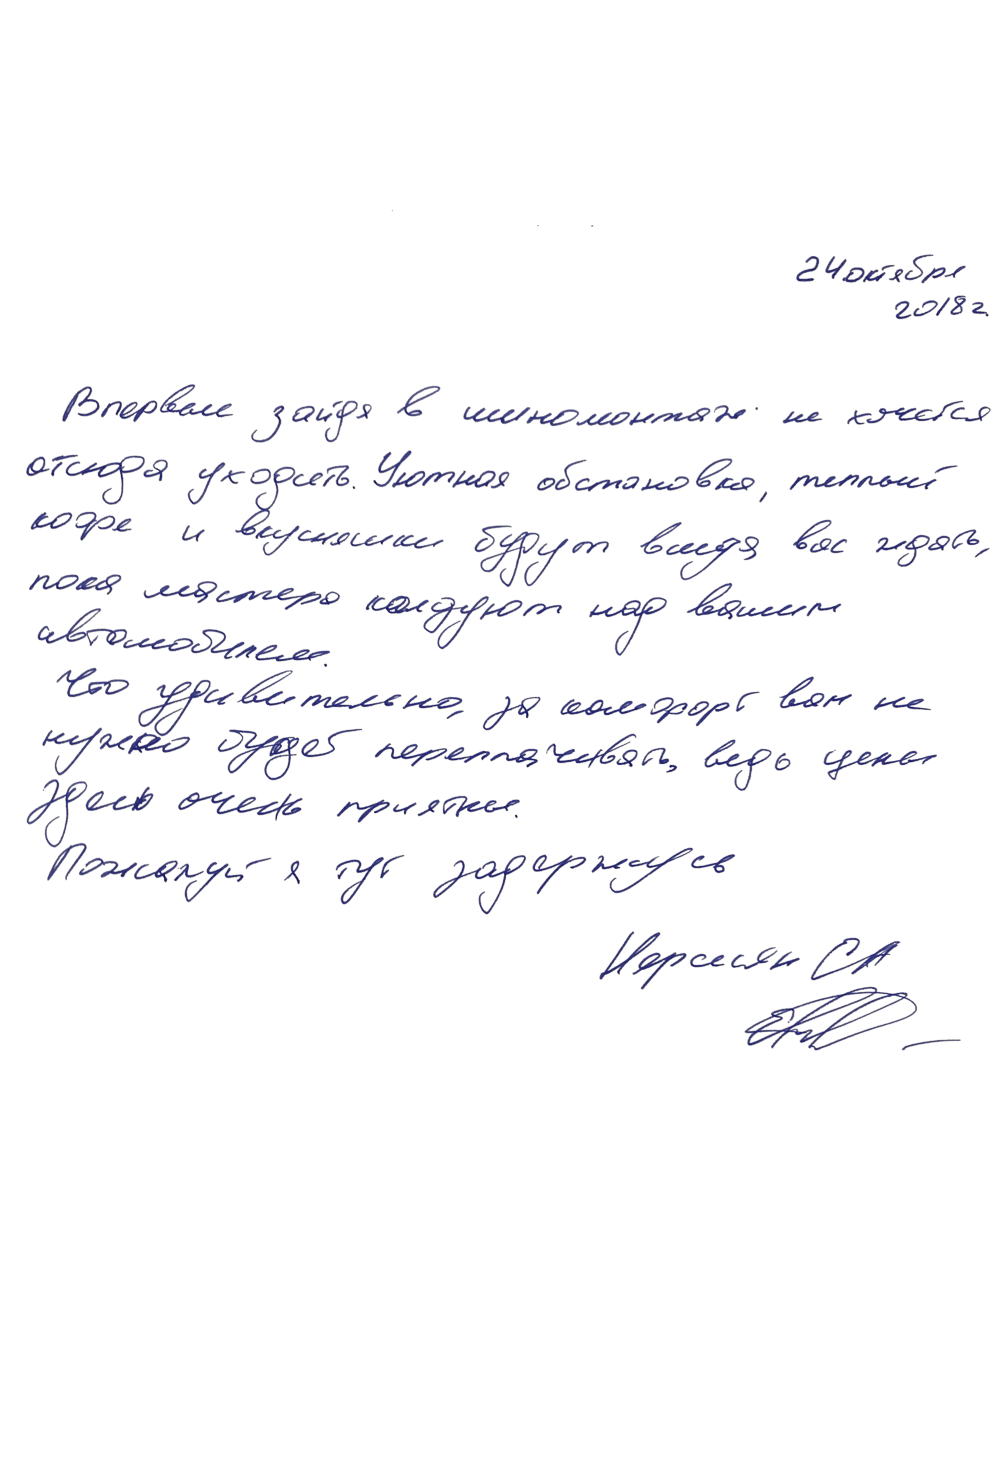 24 октября
2018 г.
Впервые зайдя в шиномонтаж не хочется
отсюда уходить. Уютная обстановка, теплый
кофе и вкусняшки будут всегда вас ждать,
пока мастера колдуют над вашим
автомобилем.
Что удивительно, за комфорт вам не
нужно будет переплачивать, ведь цены
здесь очень приятные.
Пожалуй я тут задержусь
Нерсисян СА